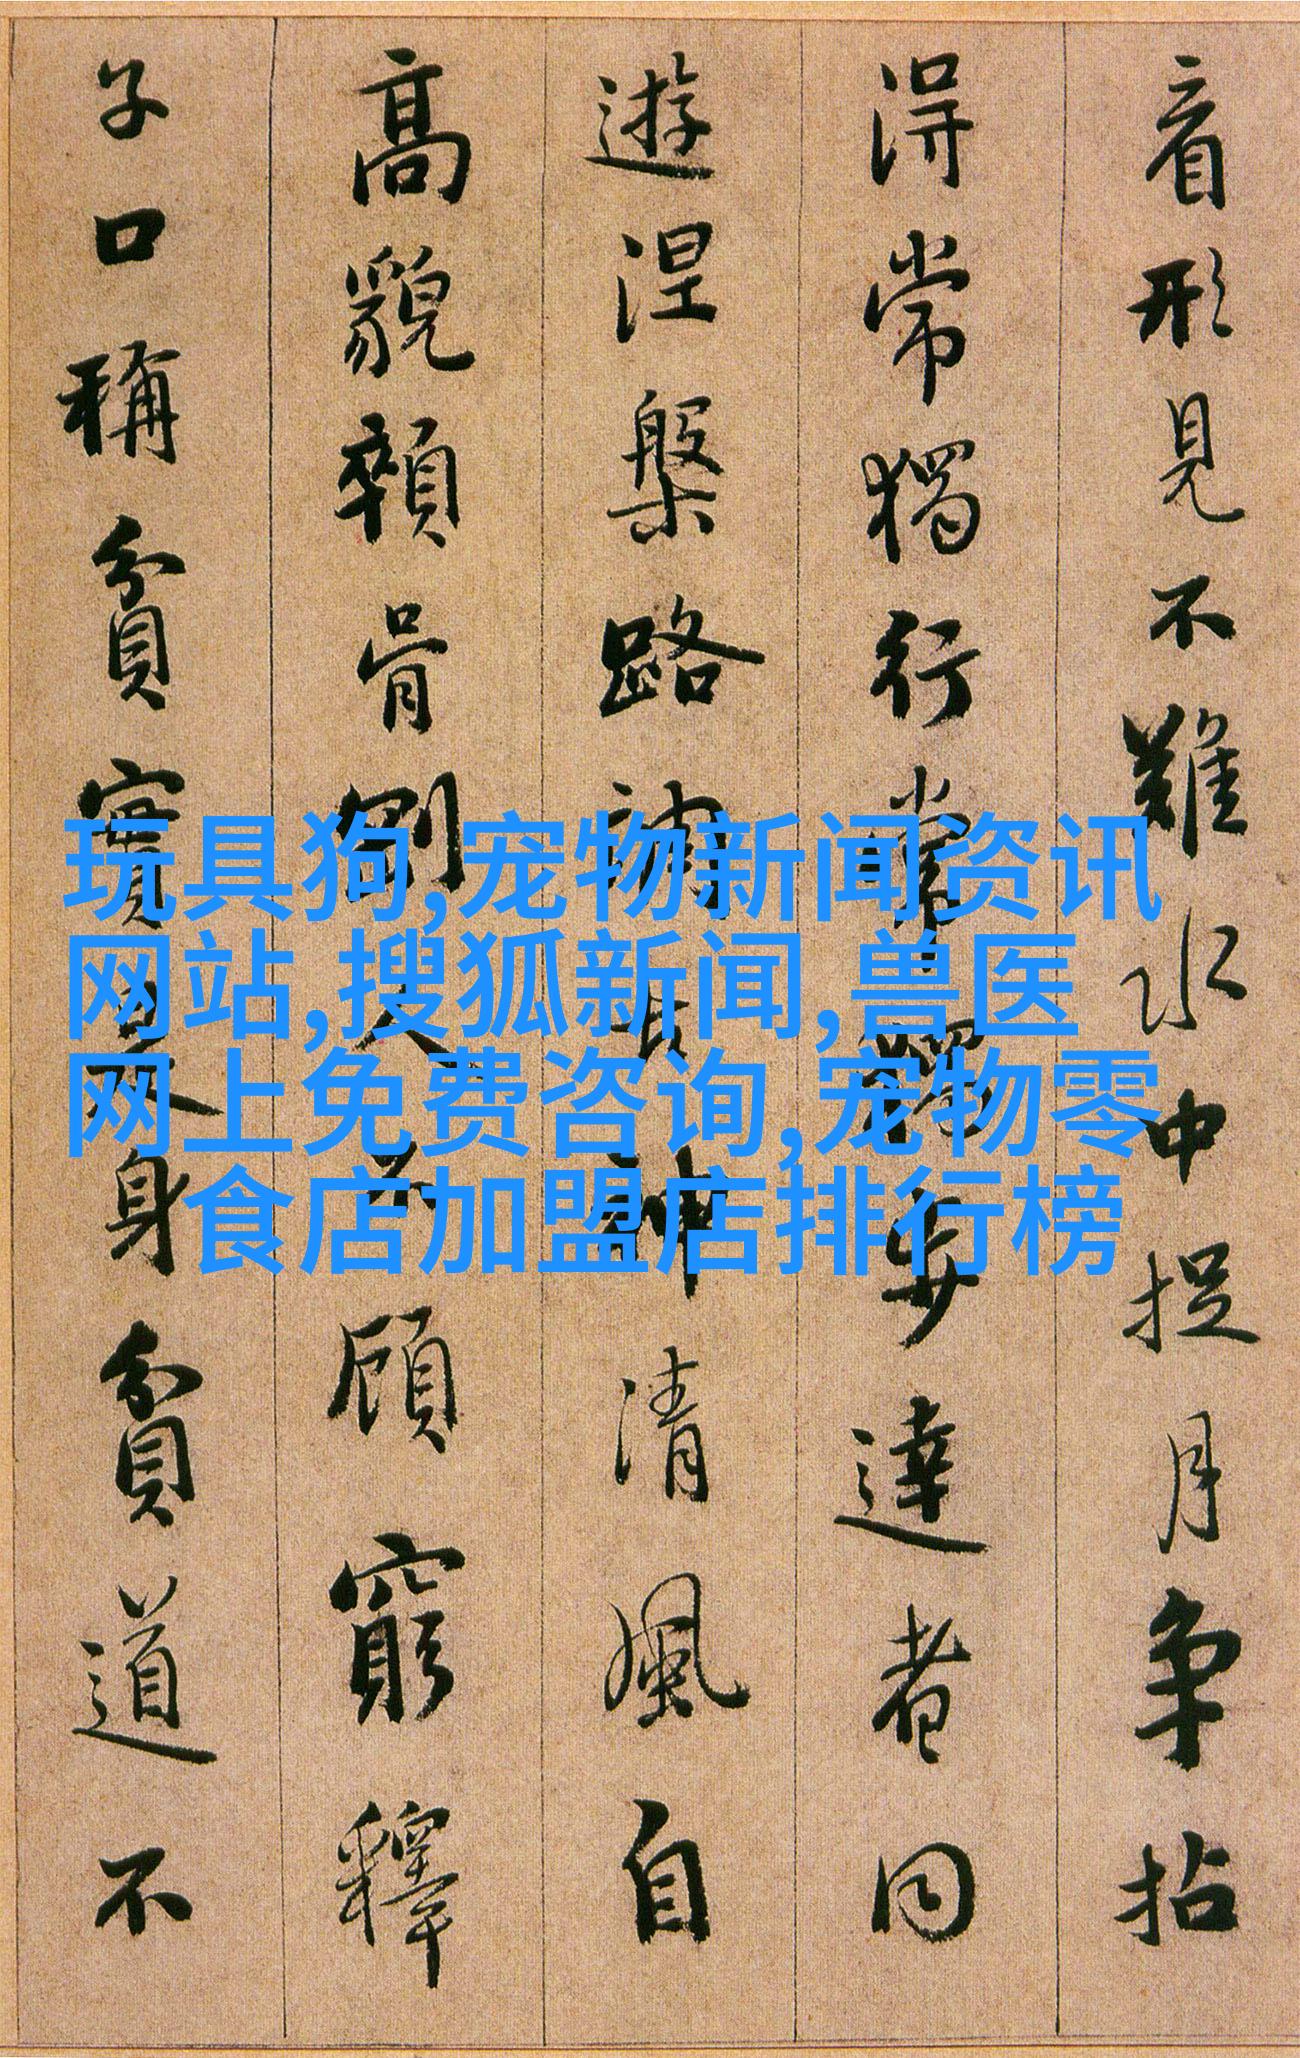 看形見不難水中捉月争拈
得常獨行常獨步達者同
遊涅槃路調古神清風自
高貌顇骨剛人不顧窮釋
子口稱貧實是身貧道不
玩具狗,宠物新闻资讯
网站,搜狐新闻,兽医
网上免费咨询,宠物零
食店加盟店排行榜